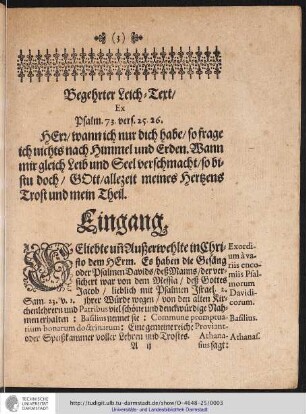 (3)
Begehrter Leich-Text/
Ex
Psalm. 73. vers. 25. 26.
HErr/ wann ich nur dich habe/ so frage
ich nichts nach Himmel und Erden. Wann
mir gleich Leib und Seel verschmacht/ so bi-
stu doch/ GOtt/ allezeit meines Hertzens
Trost und mein Theil.
Eingang.
GEliebte uñ Außerwehlte in Chri-
sto dem HErrn. Es haben die Gesäng
oder Psalmen Davids/ deß Manns/ der ver-
sichert war von dem Messia/ deß Gottes
Jacob/ lieblich mit Psalmen Israel, 2.
Sam. 23. v. 1. ihrer Würde wegen/ von den alten Kir-
chenlehrern und Patribus viel schöne und denckwürdige Nah-
men erhalten: Basilius nennet sie: Commune promptua-
rium bonarum doctrinarum: Eine gemeine reiche Proviant-
oder Speißkammer voller Lehren und Trostes. Athana-
A ij
sius sagt:
Exordi-
um à va-
riis enco-
miis Psal-
morum
Davidi-
corum.
Basilius.
Athanas.
http://tudigit.ulb.tu-darmstadt.de/show/O-4648-25/0003
Universitäts- und Landesbibliothek Darmstadt